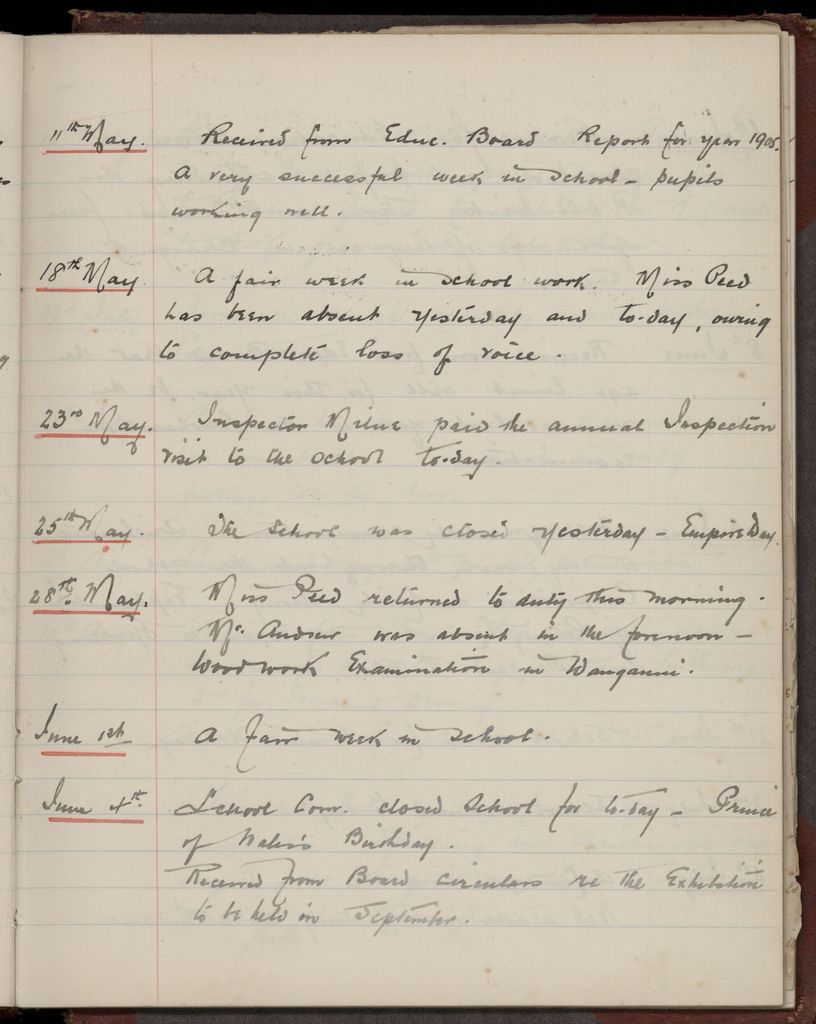 11th May. Received from Educ. Board Report for year 1905.
A very successful week in school - pupils
working well.
18th May A fair week in school work. Miss Peed
has been absent yesterday and to-day, owing
to complete loss of voice.
23rd May. Inspector Milne paid the annual Inspection
visit to the school to-day.
25th May. The School was closed yesterday - Empire Day.
28th May. Miss Peed returned to duty this morning.
Mr. Andrew was absent in the forenoon -
Woodwork Examination in Wanganui.
June 1st A fair week in school.
June 4th. School Com. closed School for to-day - Prince
of Wales's Birthday.
Received from Board circulars re the Exhibition
to be held in September.